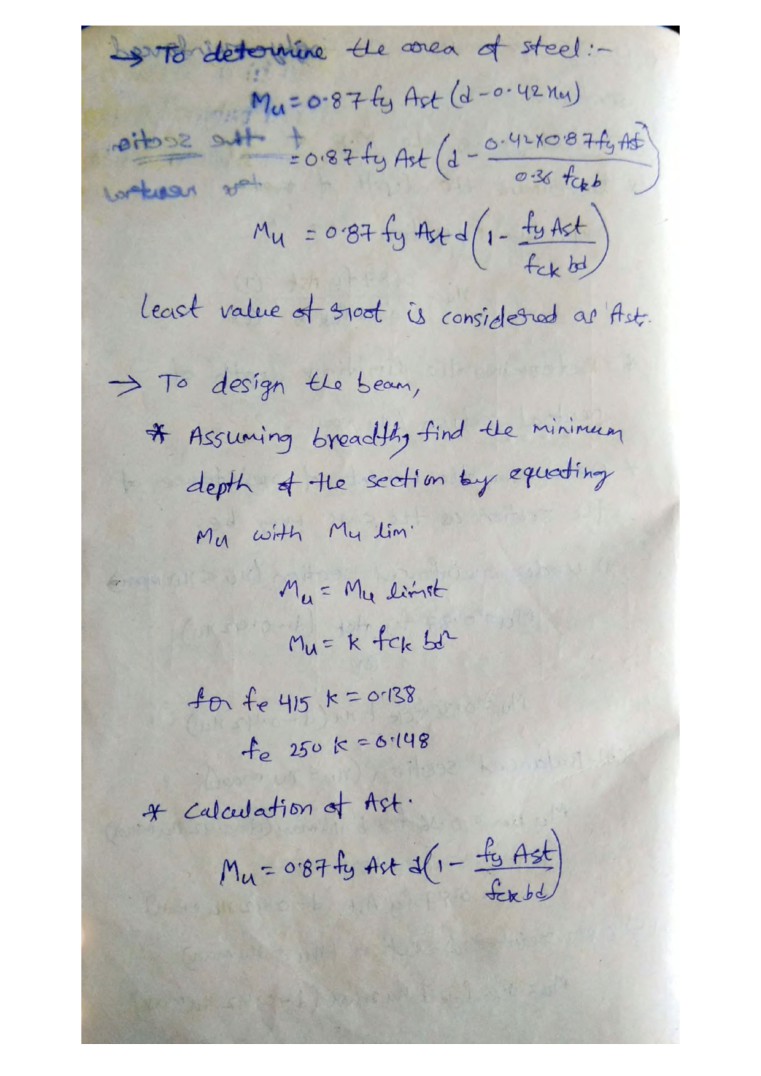 → To determine the area of steel:-
Mu = 0.87 fy Ast (d - 0.42 xu)
= 0.87 fy Ast (d - 0.42×0.87 fy Ast / 0.36 fck b)
Mu = 0.87 fy Ast d (1 - fy Ast / fck bd)
least value of root is considered as Ast.
→ To design the beam,
* Assuming breadth, find the minimum
depth of the section by equating
Mu with Mu lim.
Mu = Mu limit
Mu = k fck bd²
for fe 415 k = 0.138
fe 250 k = 0.148
* Calculation of Ast.
Mu = 0.87 fy Ast d (1 - fy Ast / fck bd)